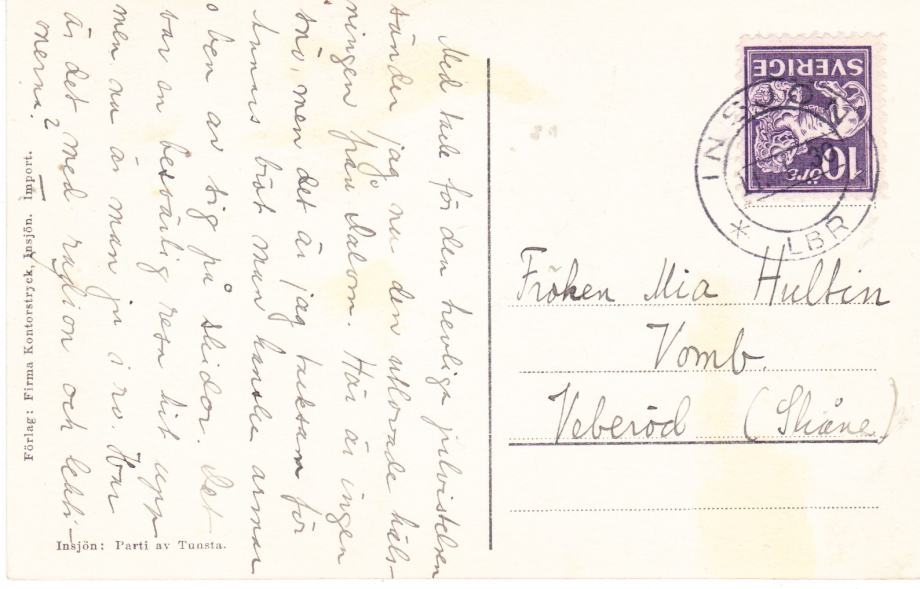 Med tack för den trevliga julvistelsen
sänder jag nu den utlovade häls-
ningen från Dalom. Här är ingen
snö, men det är jag tacksam för
Annars bröt man kanske armar
o ben av sig på skidor. Det
var en besvärlig resa hit upp
men nu är man ju i ro. Hur
är det med radion och lekti-
nerna?
Förlag: Firma Kontorstryck, Insjön. Import.
Insjön: Parti av Tunsta.
SVERIGE
10 ÖRE
INSJÖN
LBR
Fröken Mia Hultin
Vomb.
Veberöd (Skåne)